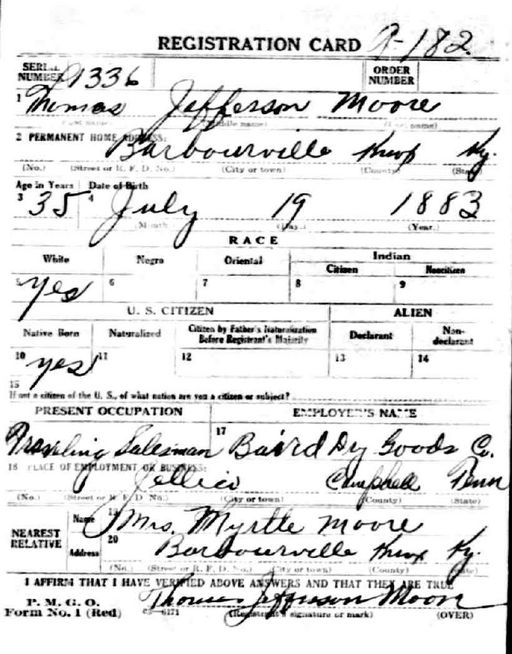 REGISTRATION CARD A-182
SERIAL NUMBER 1336 ORDER NUMBER
1 Thomas Jefferson Moore
(Middle name) (Last name)
2 PERMANENT HOME ADDRESS:
Barbourville Knox Ky.
(No.) (Street or R. F. D. No.) (City or town) (County) (State)
Age in Years Date of Birth
3 35 4 July 19 1883
(Month) (Day.) (Year.)
RACE
White Negro Oriental Indian
Citizen Noncitizen
5 yes 6 7 8 9
U. S. CITIZEN ALIEN
Native Born Naturalized Citizen by Father's Naturalization Before Registrant's Majority Declarant Non-declarant
10 yes 11 12 13 14
15
If not a citizen of the U. S., of what nation are you a citizen or subject?
PRESENT OCCUPATION EMPLOYER'S NAME
Traveling Salesman 17 Baird Dry Goods Co.
18 PLACE OF EMPLOYMENT OR BUSINESS:
Jellico Campbell Tenn
(No.) (Street or R. F. D. No.) (City or town) (County) (State)
NEAREST RELATIVE
Name 19 Mrs. Myrtle Moore
Address 20 Barbourville Knox Ky.
(No.) (Street or R. F. D. No.) (City or town) (County) (State)
I AFFIRM THAT I HAVE VERIFIED ABOVE ANSWERS AND THAT THEY ARE TRUE
P. M. G. O.
Form No. 1 (Red) Thomas Jefferson Moore
(Registrant's signature or mark) (OVER)